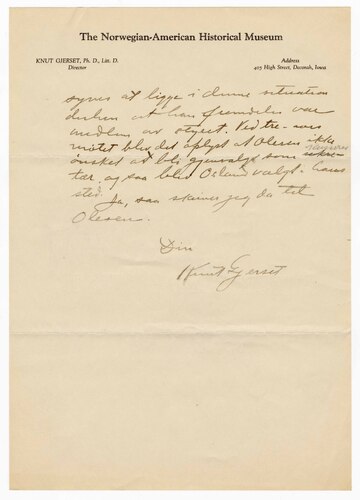 The Norwegian-American Historical Museum
KNUT GJERSET, Ph. D., Litt. D.
Director
Address
405 High Street, Decorah, Iowa
synes at ligge i denne situation
at han fremdeles var
medlem av styret. Ved
møtet blev det oplyst at Olesen ikke
ønsket at bli gjenvalgt som
tær, og saa blev Osland valgt i hans
sted. Ja, saa skrev jeg da til
Olesen.
Din
Knut Gjerset